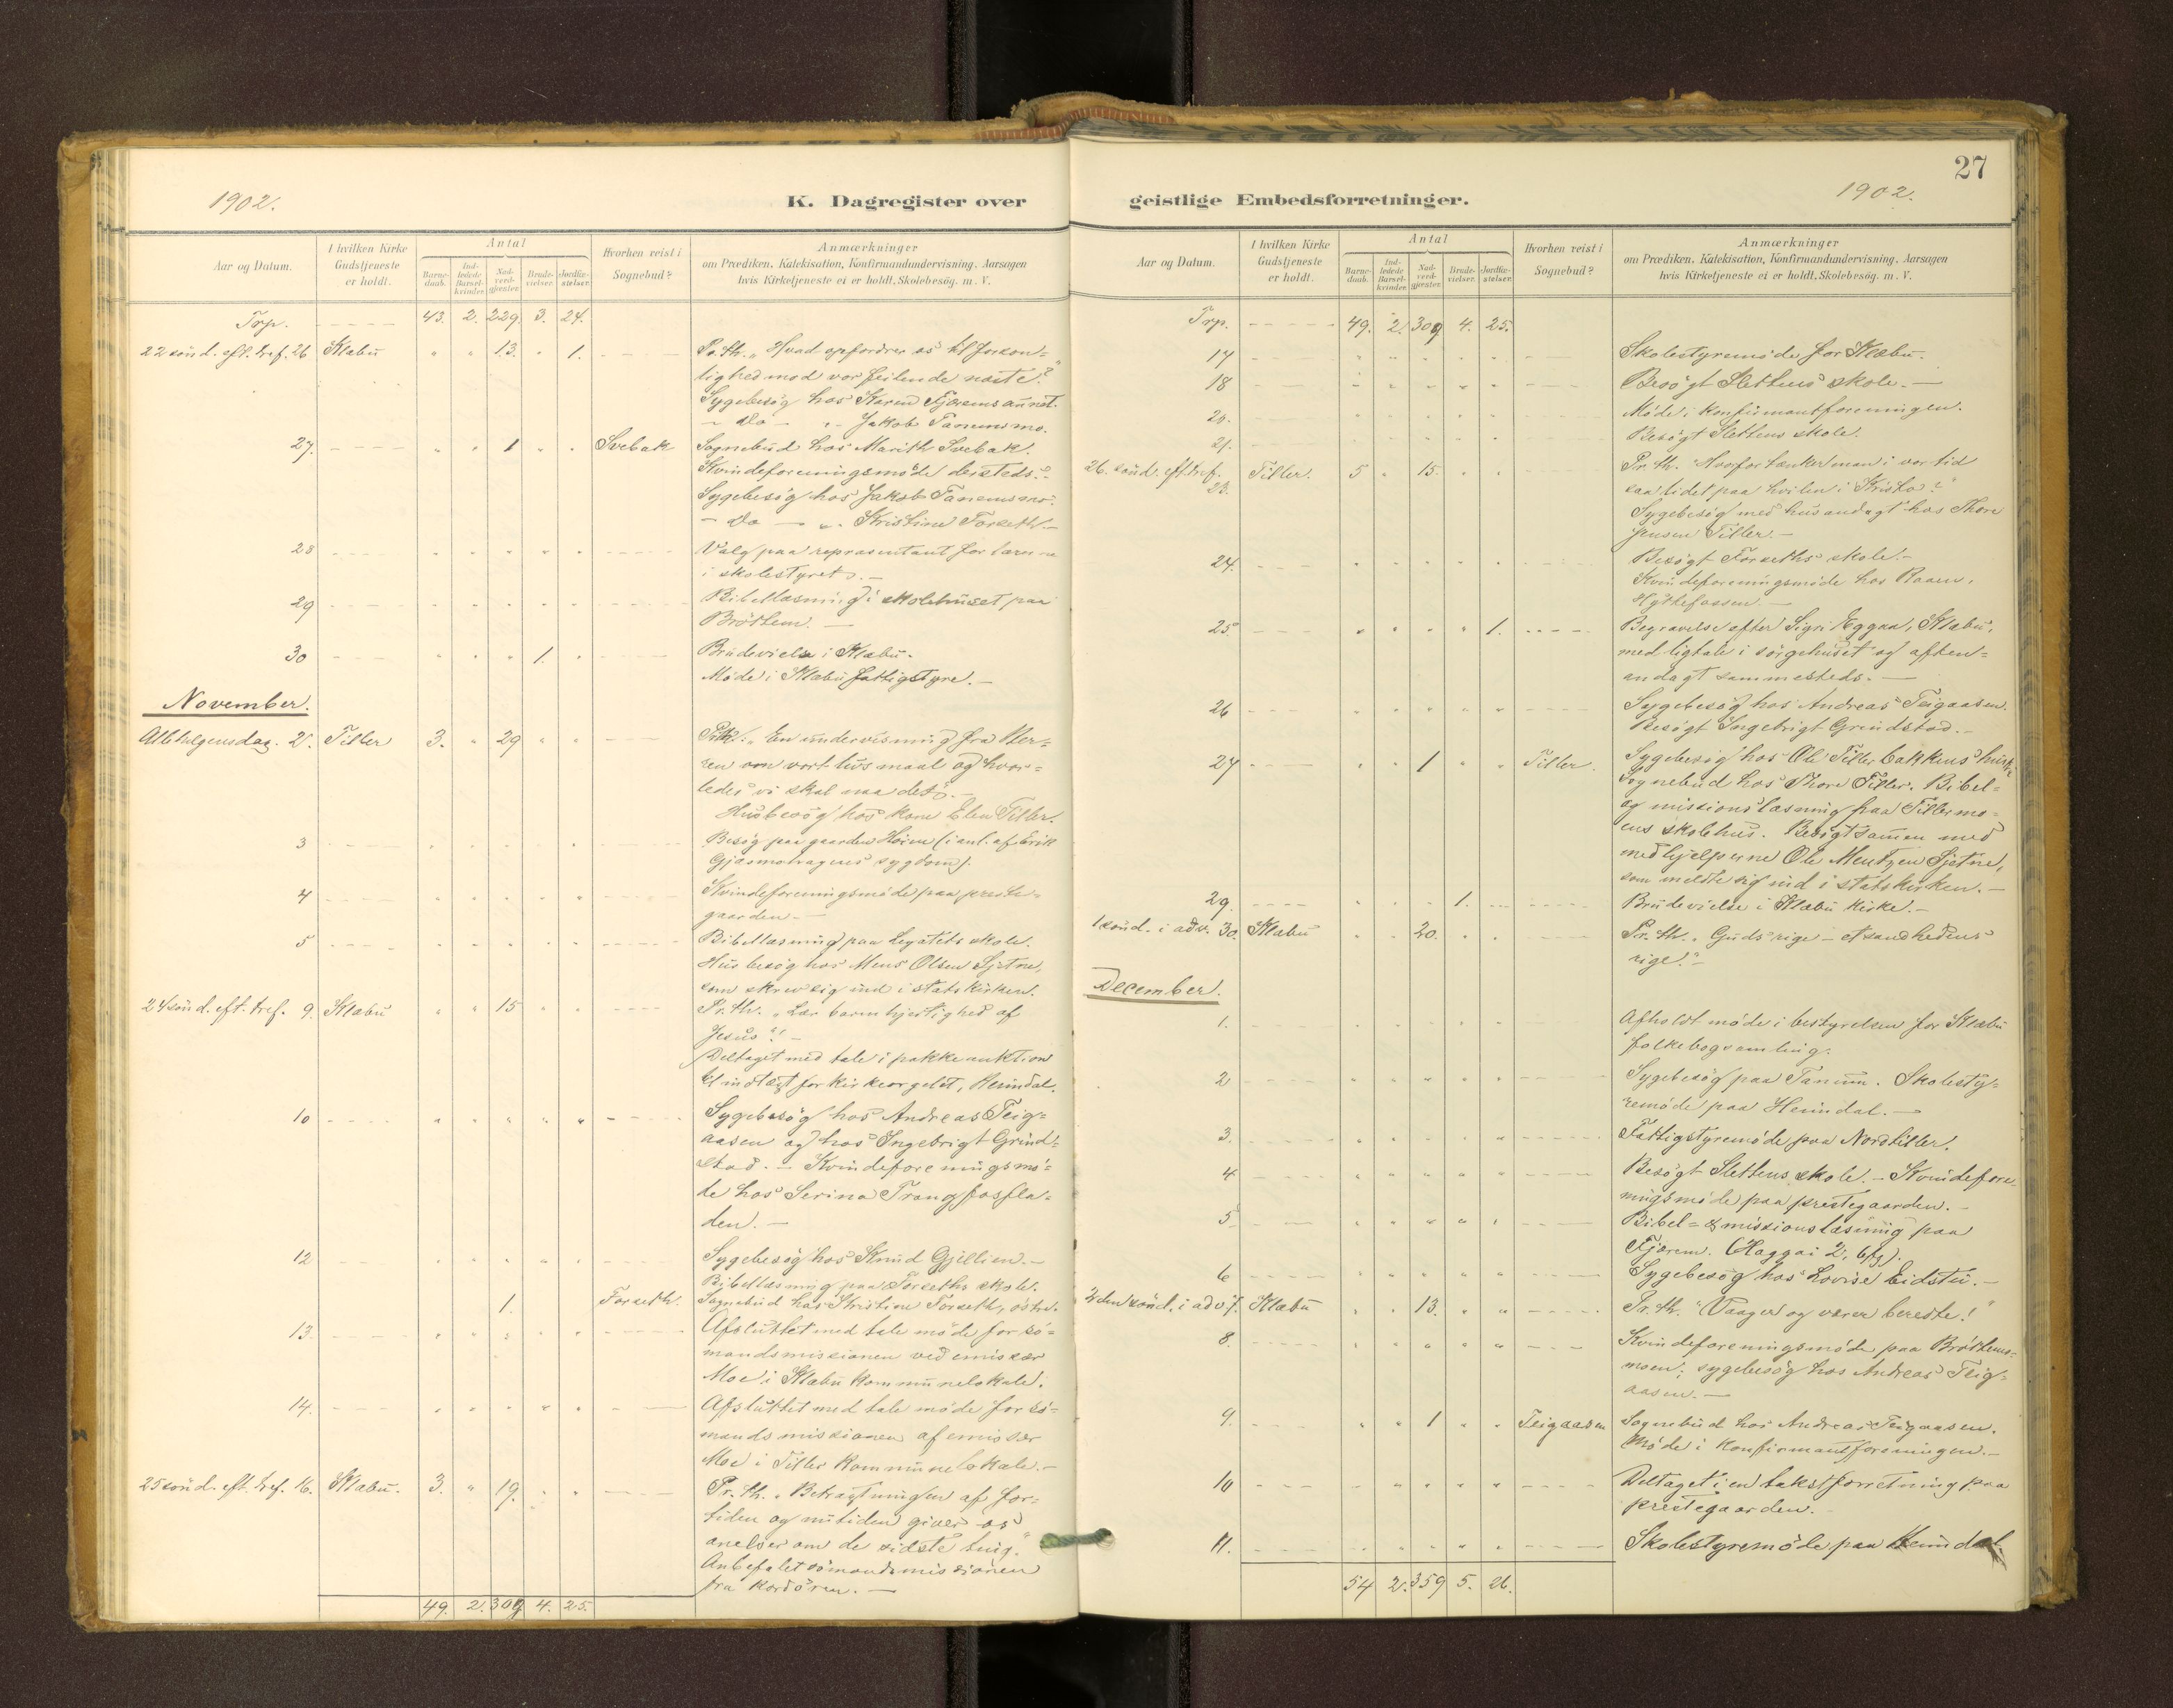 1902.
K. Dagregister over
Aar og Datum.
I hvilken Kirke Gudstjeneste er holdt.
Antal
Barne-daab.
Ind-ledede Barsel-kvinder.
Nad-verd-gjester.
Brude-vielser.
Jordfæ-stelser.
Hvorhen reist i Sognebud?
Anmærkninger
om Prædiken, Katekisation, Konfirmandundervisning, Aarsagen
hvis Kirketjeneste ei er holdt, Skolebesög. m. V.
Trp. 43. 2. 229. 3. 24.
22 sönd. eft. tref. 26 Klæbu " " 13. " 1. Pr. th. „Hvad opfordrer os til forson=
lighed mod vor feilende næste?"
Sygebesög hos Karen Fjærems
- Do - " - Jakob Tanemsmo.
27. " " " 1 " " Svebak Sognebud hos Marith Svebak.
Kvindeforeningsmöde dersteds.-
Sygebesög hos Jakob Tanemsmo.
- Do - " - Kristine Forseth.-
28 Valg paa repræsentant for lærerne
i skolestyret. -
29 Bibellæsning i skolehuset paa
Bröttem. -
30 1. Brudevielse i Klæbu.
Möde i Klæbu fattigstyre. -
November.
Allehelgensdag. 2. Tiller 3. " 29 " " Pr.th.: „En undervisning fra Her=
ren om vort livsmaal og hvor=
ledes vi skal naa det". -
Husbesög hos kone Elen Tiller.
3 Besög paa gaarden Höiem (i anl. af Erik
Gjæsmohagens sygdom).
4 Kvindeforeningsmöde paa preste-
gaarden -
5 Bibellæsning paa Legatets skole.
Husbesög hos Mens Olsen Sjetne,
som skrev sig ind i statskirken.
24 sönd. eft. tref. 9. Klæbu " " 15 " " Pr. th. „Lær barmhjertighed af
Jesus"! -
Deltaget med tale i pakkeauktion
til indtægt for kirkeorgelet, Heimdal.
10 Sygebesög hos Andreas Teig=
aasen og hos Ingebrigt Grind=
stad. - Kvindeforeningsmö=
de hos Serina Trangfosfla=
den. -
12 Sygebesög hos Knud Gjellien. -
Bibellæsning paa Forseths skole.
1. Forseth. Sognebud hos Kristine Forseth, östre.
13. Afsluttet med tale möde for sö=
mandsmissionen ved emissær
Moe i Klæbu kommunelokale.
14. Afsluttet med tale möde for sö=
mandsmissionen af emissær
Moe i Tiller kommunelokale. -
25 sönd. eft. tref. 16. Klæbu. 3. " 19. " " Pr. th. „Betragtningen af for=
tiden og nutiden giver os
anelser om de sidste ting."
Anbefalet sömandsmissionen
fra kordören. -
49. 2. 309 4. 25.
27
geistlige Embedsforretninger.
1902.
Aar og Datum.
I hvilken Kirke Gudstjeneste er holdt.
Antal
Barne-daab.
Ind-ledede Barsel-kvinder.
Nad-verd-gjester.
Brude-vielser.
Jordfæ-stelser.
Hvorhen reist i Sognebud?
Anmærkninger
om Prædiken, Katekisation, Konfirmandundervisning, Aarsagen
hvis Kirketjeneste ei er holdt, Skolebesög. m. V.
Trp. 49. 2. 309 4. 25.
17 Skolestyremöde for Klæbu.
18 Besögt Slettens skole. -
20. Möde i konfirmantforeningen.
21. Besögt Slettens skole.
26. sönd. eft. tref. 23. Tiller. 5 " 15. " " Pr. th. "Hvorfor tænker man i vor tid
saa lidet paa hvilen i Kristo?"
Sygebesög med husandagt hos Thore
Jensen Tiller. -
24. Besögt Forseths skole. -
Kvindeforeningsmöde hos Raaen,
Hyttefossen. -
25. 1. Begravelse efter Sigri Eggaa, Klæbu,
med ligtale i sörgehuset og aften=
andagt sammesteds. -
26 Sygebesög hos Andreas Teigaasen.
Besögt Ingebrigt Grindstad. -
27 1 Tiller. Sygebesög hos Ole Tillerbakkens
Sognebud hos Thore Tiller. Bibel=
og missionslæsning paa Tillermo=
ens skolehus. Besögt sammen med
medhjelperne Ole Mentzen Sjetne,
som meldte sig ind i statskirken. -
29. 1. Brudevielse i Klæbu kirke. -
1 sönd. i adv. 30. Klæbu " " 20. " " Pr. th. „Guds rige - et sandhedens
rige". -
December.
1. Afholdt möde i bestyrelsen for Klæbu
folkebogsamling.
2 Sygebesög paa Tanem. Skolesty=
remöde paa Heimdal. -
3. Fattigstyremöde paa Nordtiller.
4 Besögt Slettens skole. - Kvindefore-
ningsmöde paa prestegaarden. -
5 Bibel- & missionslæsning paa
Fjærem. (Haggai 2, 6fg).
6 Sygebesög hos Lovise Eidstu. -
2den sönd. i adv. 7. Klæbu " " 13. " " Pr. th. "Vaager og værer beredte!"
8. Kvindeforeningsmöde paa Bröttems-
moen; sygebesög hos Andreas Teig=
aasen. -
9. 1 Teigaasen Sognebud hos Andreas Teigaasen.
Möde i konfirmantforeningen. -
10 Deltaget i en takstforretning paa
prestegaarden. -
11. Skolestyremöde paa Heimdal.
54 2. 359 5. 26.